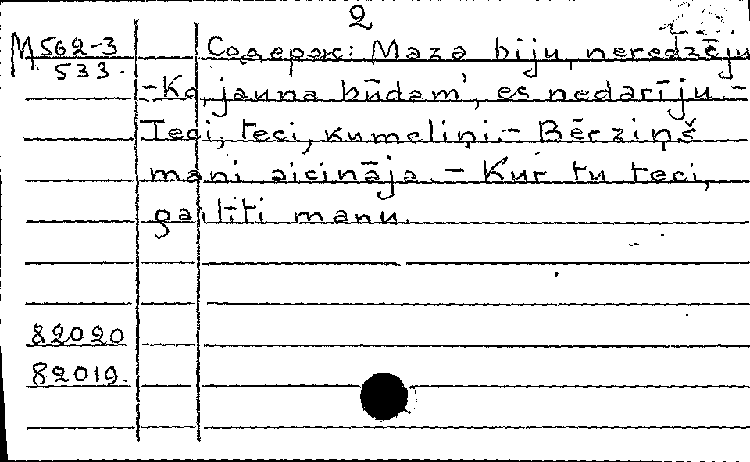 2
М 562-3
533.
Содерж: Maza biju, neredzēju
- Ko, jauna būdam', es nedarīju. -
Teci, teci, kumeliņi. - Bērziņš
mani aicināja. - Kur tu teci,
gailīti manu.
82020
82019.